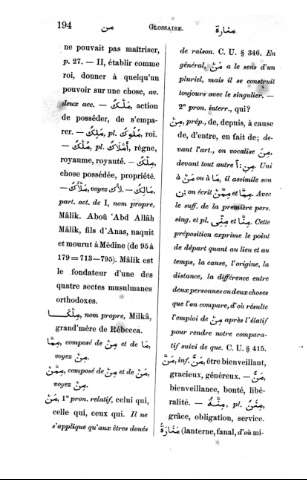 194 من GLOSSAIRE. مغارة
ne pouvait pas maîtriser,
p. 27. — II, établir comme
roi, donner à quelqu'un
pouvoir sur une chose, av.
deux acc. — مَلْكٌ, action
de posséder, de s'empa-
rer. — مَلِكٌ pl. مُلُوكٌ, roi.
— مُلْكٌ, pl. أَمْلَاكٌ, règne,
royaume, royauté. — مِلْكٌ,
chose possédée, propriété.
— voyez لأك. — مَالِكٌ,
part. act. de I, nom propre,
Mâlik. Aboû 'Abd Allâh
Mâlik, fils d'Anas, naquit
et mourut à Médine (de 95 à
179 = 713–795). Mâlik est
le fondateur d'une des
quatre sectes musulmanes
orthodoxes.
nom propre, Milkâ,
grand'mère de Rébecca.
مِمَّا, composé de مِنْ et de مَا,
voyez مِنْ.
مِمَّنْ, composé de مِنْ et de مَنْ,
voyez مِنْ.
مَنْ, 1° pron. relatif, celui qui,
celle qui, ceux qui. Il ne
s'applique qu'aux êtres doués
de raison. C. U. § 346. En
général, مَنْ a le sens d'un
pluriel, mais il se construit
toujours avec le singulier, —
2° pron. interr., qui?
مِنْ, prép., de, depuis, à cause
de, d'entre, en fait de; de-
vant l'art., on vocalise مِنَ,
devant tout autre أ: مِنِ. Uni
à مَنْ ou à مَا, il assimile son
ن; on écrit مِمَّنْ et مِمَّا. Avec
le suff. de la première pers.
sing. et pl. مِنِّي et مِنَّا. Cette
préposition exprime le point
de départ quant au lieu et au
temps, la cause, l'origine, la
distance, la différence entre
deux personnes ou deux choses
que l'on compare, d'où résulte
l'emploi de مِنْ après l'élatif
pour rendre notre compara-
tif suivi de que. C. U. § 415.
مَنَّ, inf. مَنٌّ, être bienveillant,
gracieux, généreux. — مَنٌّ,
bienveillance, bonté, libé-
ralité. — مِنَّةٌ, pl. مِنَنٌ,
grâce, obligation, service.
مَنَارَةٌ (lanterne, fanal, d'où mi-